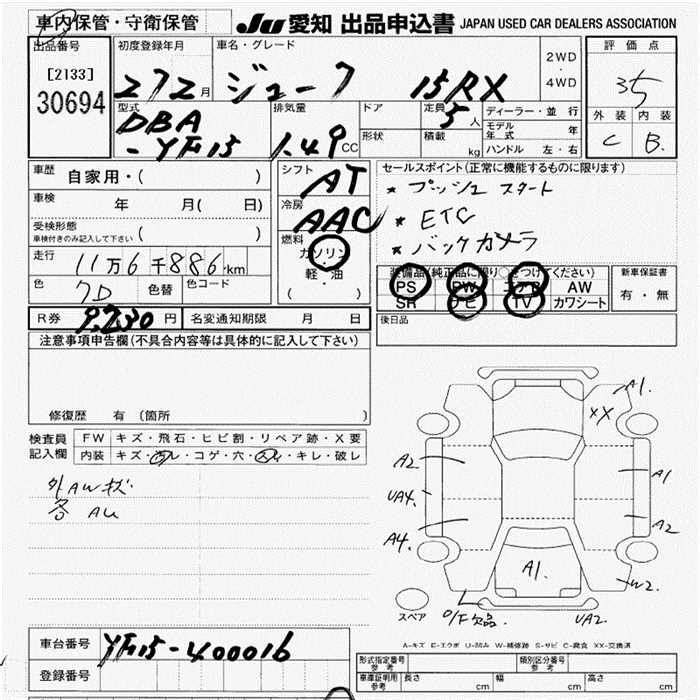 車内保管・守衛保管
JU 愛知 出品申込書 JAPAN USED CAR DEALERS ASSOCIATION
出品番号
[2133]
30694
初度登録年月
27 2月
車名・グレード
ジューク 15RX
2WD
・
4WD
評価点
3.5
外装 内装
C B
型式
DBA
-YF15
排気量
1.49 CC
ドア
形状
定員
5人
積載
kg
ディーラー・並行
モデル年式 年
ハンドル 左・右
車歴 自家用・( )
車検 年 月( 日)
受検形態
車検付きのみ記入して下さい ( )
走行 11万6千886km
色 7D 色替 色コード
シフト
AT
冷房
AAC
燃料
ガソリン
・
軽・油
( )
セールスポイント(正常に機能するものに限ります)
* プッシュ スタート
* ETC
* バックカメラ
装備品(純正品に限り○をつけてください)
PS PW エアB AW
SR ナビ TV カワシート
新車保証書
有・無
R券 9,230円 名変通知期限 月 日
後日品
注意事項申告欄(不具合内容等は具体的に記入して下さい)
修復歴 有(箇所 )
検査員
記入欄
FW キズ・飛石・ヒビ割・リペア跡・X要
内装 キズ・汚レ・コゲ・穴・スレ・キレ・破レ
外AWキズ
各AU
A1.
XX
A2
UA4.
A4.
A1
A2
A1.
W2
UA2.
O/F欠品
スペア
A-キズ E-エクボ U-凹み W-補修跡 S-サビ C-腐食 XX-交換済
車台番号 YF15-400016
登録番号
形式指定番号
参考
類別区分番号
参考
車庫証明用
参考
長さ cm 幅 cm 高さ cm